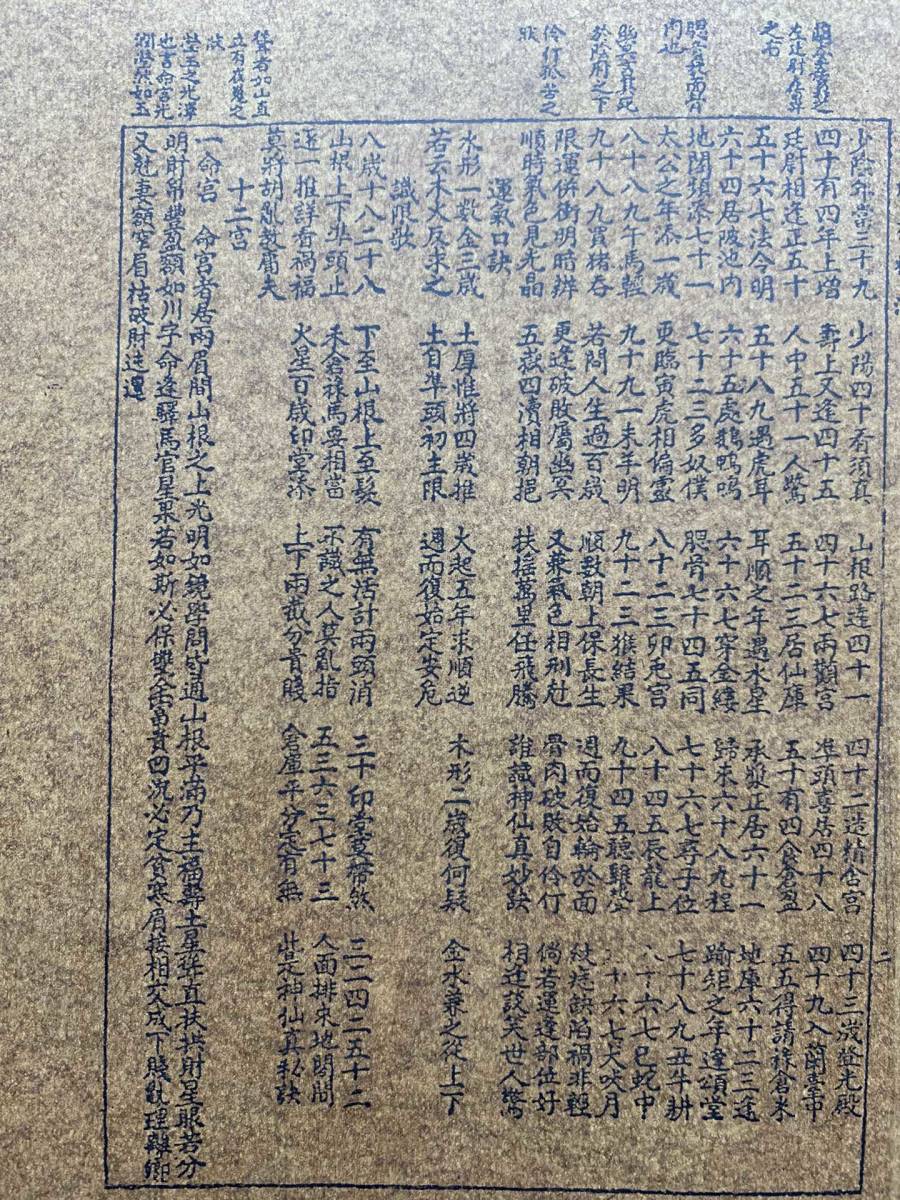 左廷尉居鼻
之右
內也
幽冥言其死
於陰府之下
伶仃孤苦之
狀
聳者如山直
狀
瑩玉之光澤
也言命宮光
潤瑩然如玉
少陰年當三十九 少陽四十看須真 山根路遠四十一 四十二造精舍宮 四十三歲登光殿
四十有四年上增 壽上又逢四十五 四十六七兩顴宮 準頭喜居四十八 四十九入蘭臺中
廷尉相逢正五十 人中五十一人驚 五十二三居仙庫 五十有四食倉盈 五五得請祿倉米
五十六七法令明 五十八九遇虎耳 耳順之年遇水星 承漿正居六十一 地庫六十二三逢
六十四居陂池內 六十五處鵝鴨鳴 六十六七穿金縷 歸來六十八九程 踰矩之年逢頌堂
地閣頻添七十一 七十二三多奴僕 腮骨七十四五同 七十六七尋子位 七十八九丑牛耕
太公之年添一歲 更臨寅虎相偏靈 八十二三卯兔宮 八十四五辰龍上 八十六七巳蛇中
八十八九午馬輕 九十九一未羊明 九十二三猴結果 九十四五聽雞聲 九十六七犬吠月
九十八九買猪吞 若問人生過百歲 順數朝上保長生 週而復始輪於面 紋痣缺陷禍非輕
限運併衝明暗辦 更逢破敗屬幽冥 又兼氣色相刑尅 骨肉破敗自伶仃 倘若運逢部位好
順時氣色見光晶 五嶽四瀆相朝挹 扶搖萬里任飛騰 誰識神仙真妙訣 相逢談笑世人驚
運氣口訣
水形一數金三歲 土厚惟將四歲推 火起五年求順逆 木形二歲復何疑 金水兼之從上下
若云水火反求之 土自準頭初主限 週而復始定安危
識限歌
八歲十八二十八 下至山根上至髮 有無活計兩頭消 三十印堂莫帶煞 三二四二五十二
山根上下準頭止 禾倉祿馬要相當 不識之人莫亂指 五三六三七十三 人面排來地閣間
逐一推詳看禍福 火星百歲印堂添 上下兩截分貴賤 倉庫平分定有無 此是神仙真秘訣
莫將胡亂教庸夫
十二宮
一命宮 命宮者居兩眉間山根之上光明如鏡學問皆通山根平滿乃主福壽土星聳直扶拱財星眼若分
明財帛豐盈額如川字命逢驛馬官星果若如斯必保雙全富貴凹沉必定貧寒眉接相交成下賤亂理離鄉
又尅妻額窄眉枯破財迍邅
二